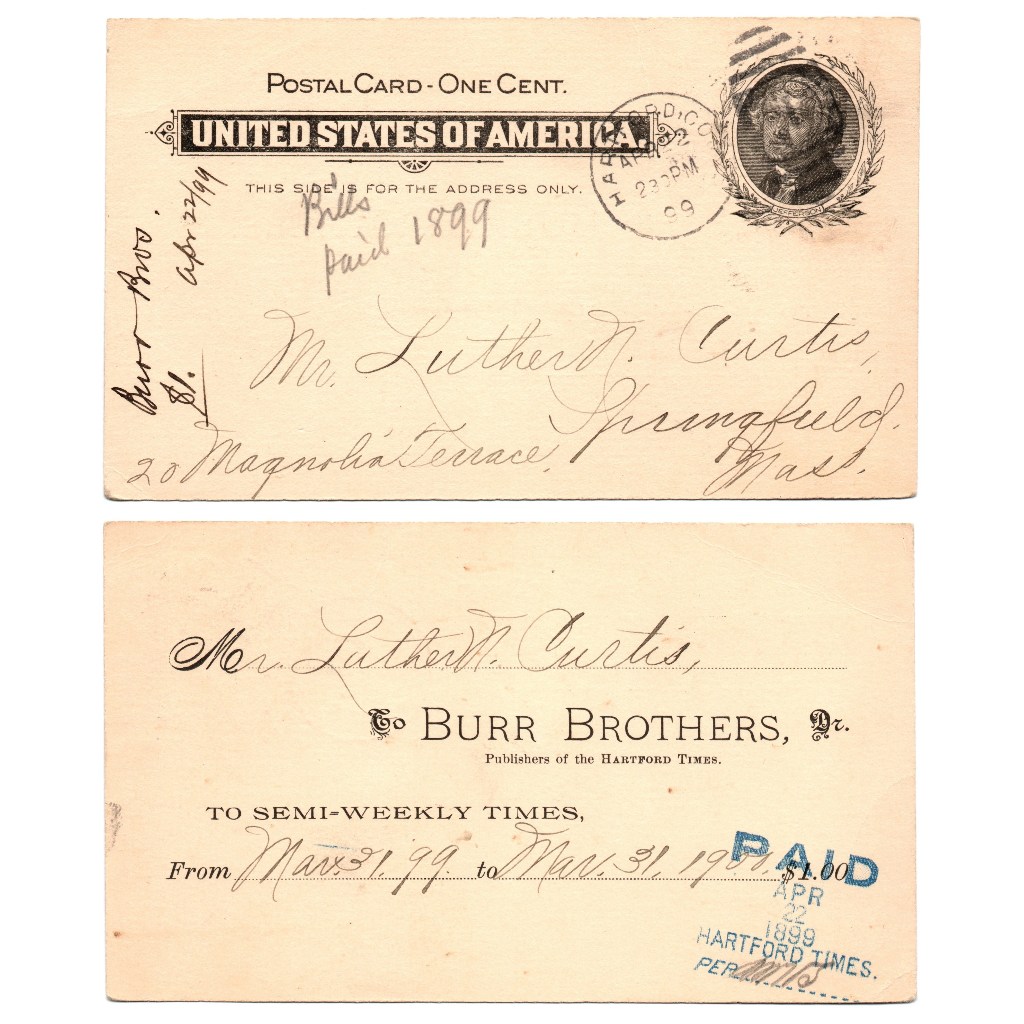 POSTAL CARD - ONE CENT.
UNITED STATES OF AMERICA.
THIS SIDE IS FOR THE ADDRESS ONLY.
HARTFORD, CO
APR 22
230PM
99
JEFFERSON
Burr Bros. Apr 22/99
$1.
Bills
paid 1899
Mr. Luther N. Curtis,
Springfield,
20 Magnolia Terrace. Mass.
Mr. Luther N. Curtis,
To BURR BROTHERS, Dr.
Publishers of the HARTFORD TIMES.
TO SEMI-WEEKLY TIMES,
From Mar. 31, 99. to Mar. 31, 1900. $1.00
PAID
APR
22
1899
HARTFORD TIMES.
PER